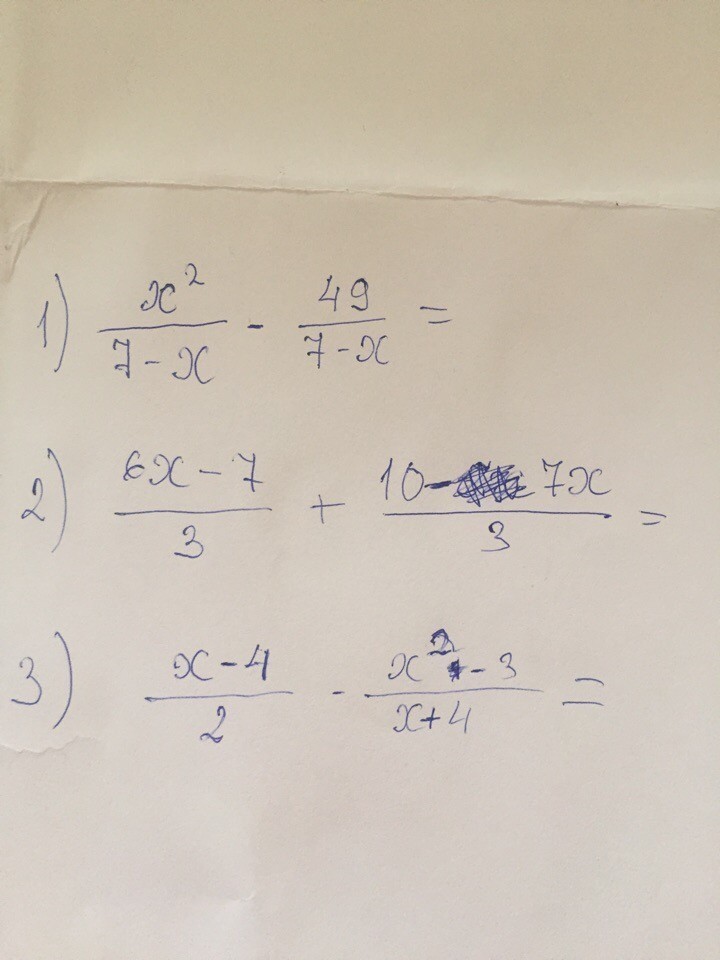 1) x²/(7-x) - 49/(7-x) =
2) (6x-7)/3 + (10-7x)/3 =
3) (x-4)/2 - (x²-3)/(x+4) =